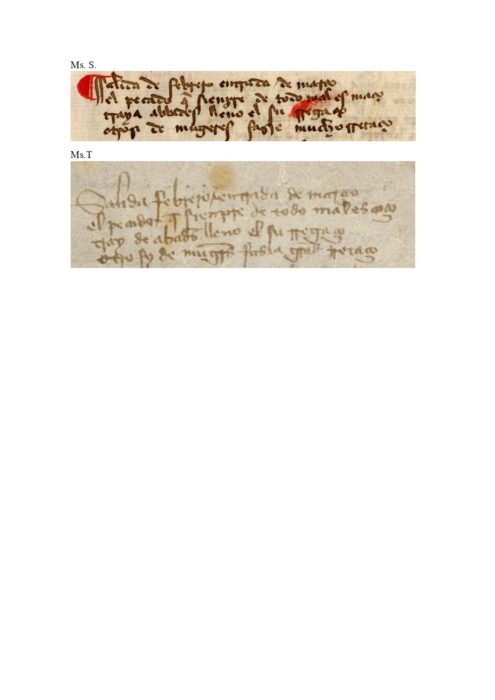 Ms. S.
Salida de febrero entrada de março
el pecado q̃ sienpre de todo mal es maço
traya abbades lleno el su rregaço
otrosi de mugeres fazie mucho rretaço
Ms.T
Salida febrero entrada de março
el pecador q̃ sienpre de todo mal es
tray de abades lleno el su rregaço
otro sy de mug̃s fasia